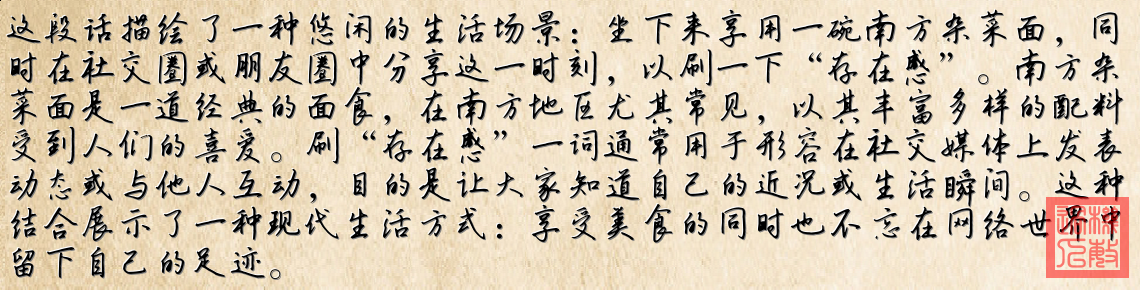 这段话描绘了一种悠闲的生活场景：坐下来享用一碗南方杂菜面，同
时在社交圈或朋友圈中分享这一时刻，以刷一下“存在感”。南方杂
菜面是一道经典的面食，在南方地区尤其常见，以其丰富多样的配料
受到人们的喜爱。刷“存在感”一词通常用于形容在社交媒体上发表
动态或与他人互动，目的是让大家知道自己的近况或生活瞬间。这种
结合展示了一种现代生活方式：享受美食的同时也不忘在网络世界中
留下自己的足迹。